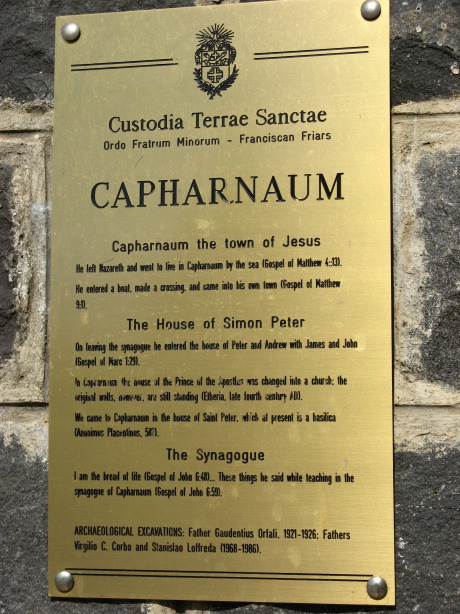 Custodia Terrae Sanctae
Ordo Fratrum Minorum - Franciscan Friars
CAPHARNAUM
Capharnaum the town of Jesus
He left Nazareth and went to live in Capharnaum by the sea (Gospel of Matthew 4:13).
He entered a boat, made a crossing, and came into his own town (Gospel of Matthew
9:1).
The House of Simon Peter
On leaving the synagogue he entered the house of Peter and Andrew with James and John
(Gospel of Marc 1:29).
In Capharnaum the house of the Prince of the Apostles was changed into a church; the
original walls, however, are still standing (Etheria, late fourth century AD).
We came to Capharnaum in the house of Saint Peter, which at present is a basilica
(Anonimus Placentinus, 570).
The Synagogue
I am the bread of life (Gospel of John 6:48)... These things he said while teaching in the
synagogue of Capharnaum (Gospel of John 6:59).
ARCHAEOLOGICAL EXCAVATIONS: Father Gaudentius Orfali, 1921-1926; Fathers
Virgilio C. Corbo and Stanislao Loffreda (1968-1986).